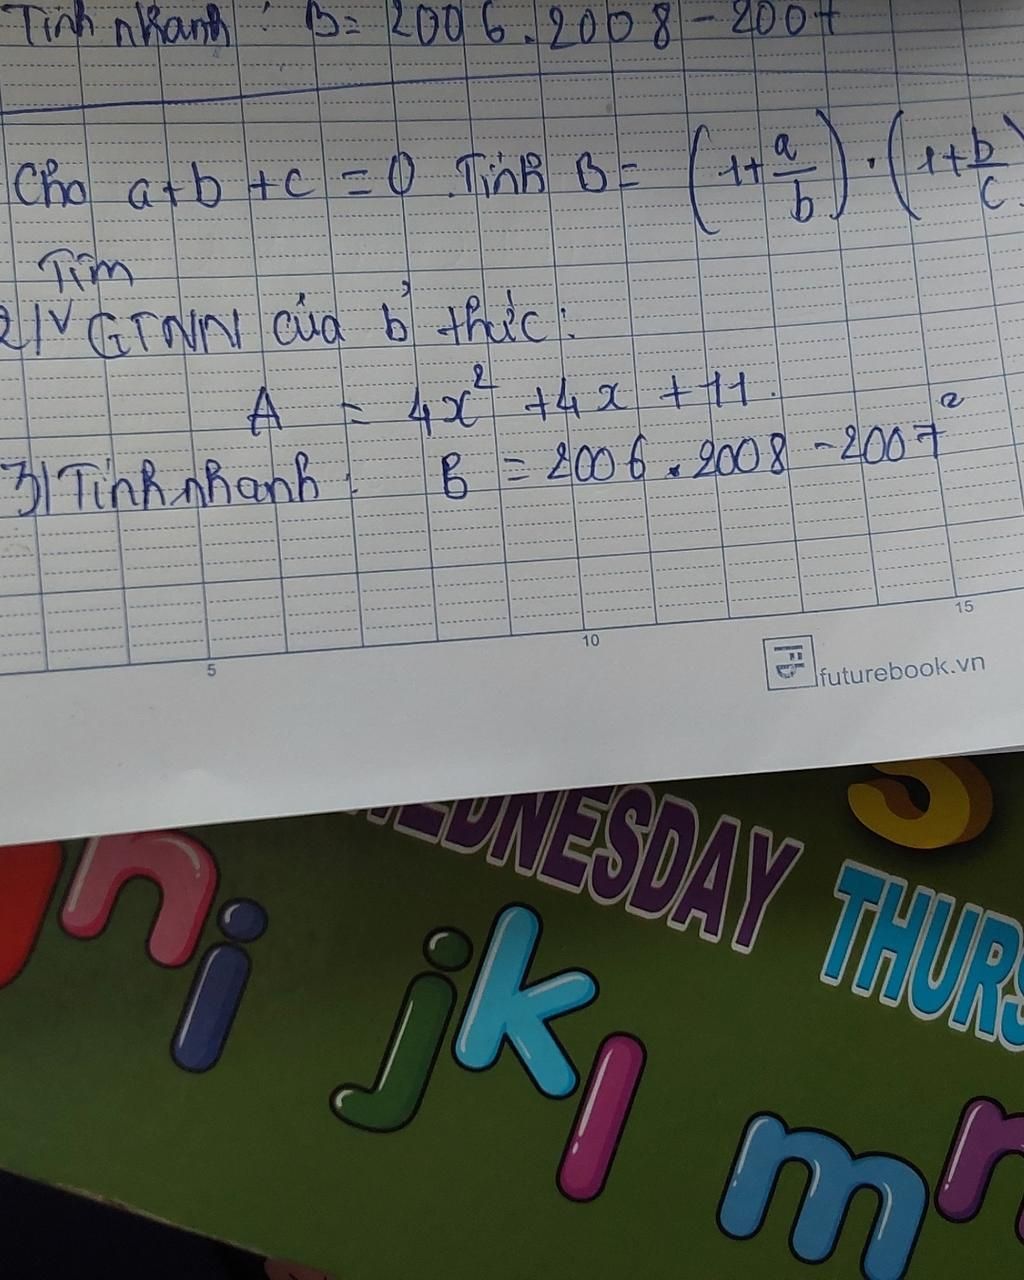 Tính nhanh : B = 2006.2008 - 2007
Cho a+b+c = 0. Tính B = (1+a/b).(1+b/c)
Tìm
2/ GTNN của b' thức:
A = 4x² + 4x + 11.
3/ Tính nhanh : B = 2006.2008 - 2007²
5
10
15
futurebook.vn
WEDNESDAY
THURS
h
i
j
k
l
m
n